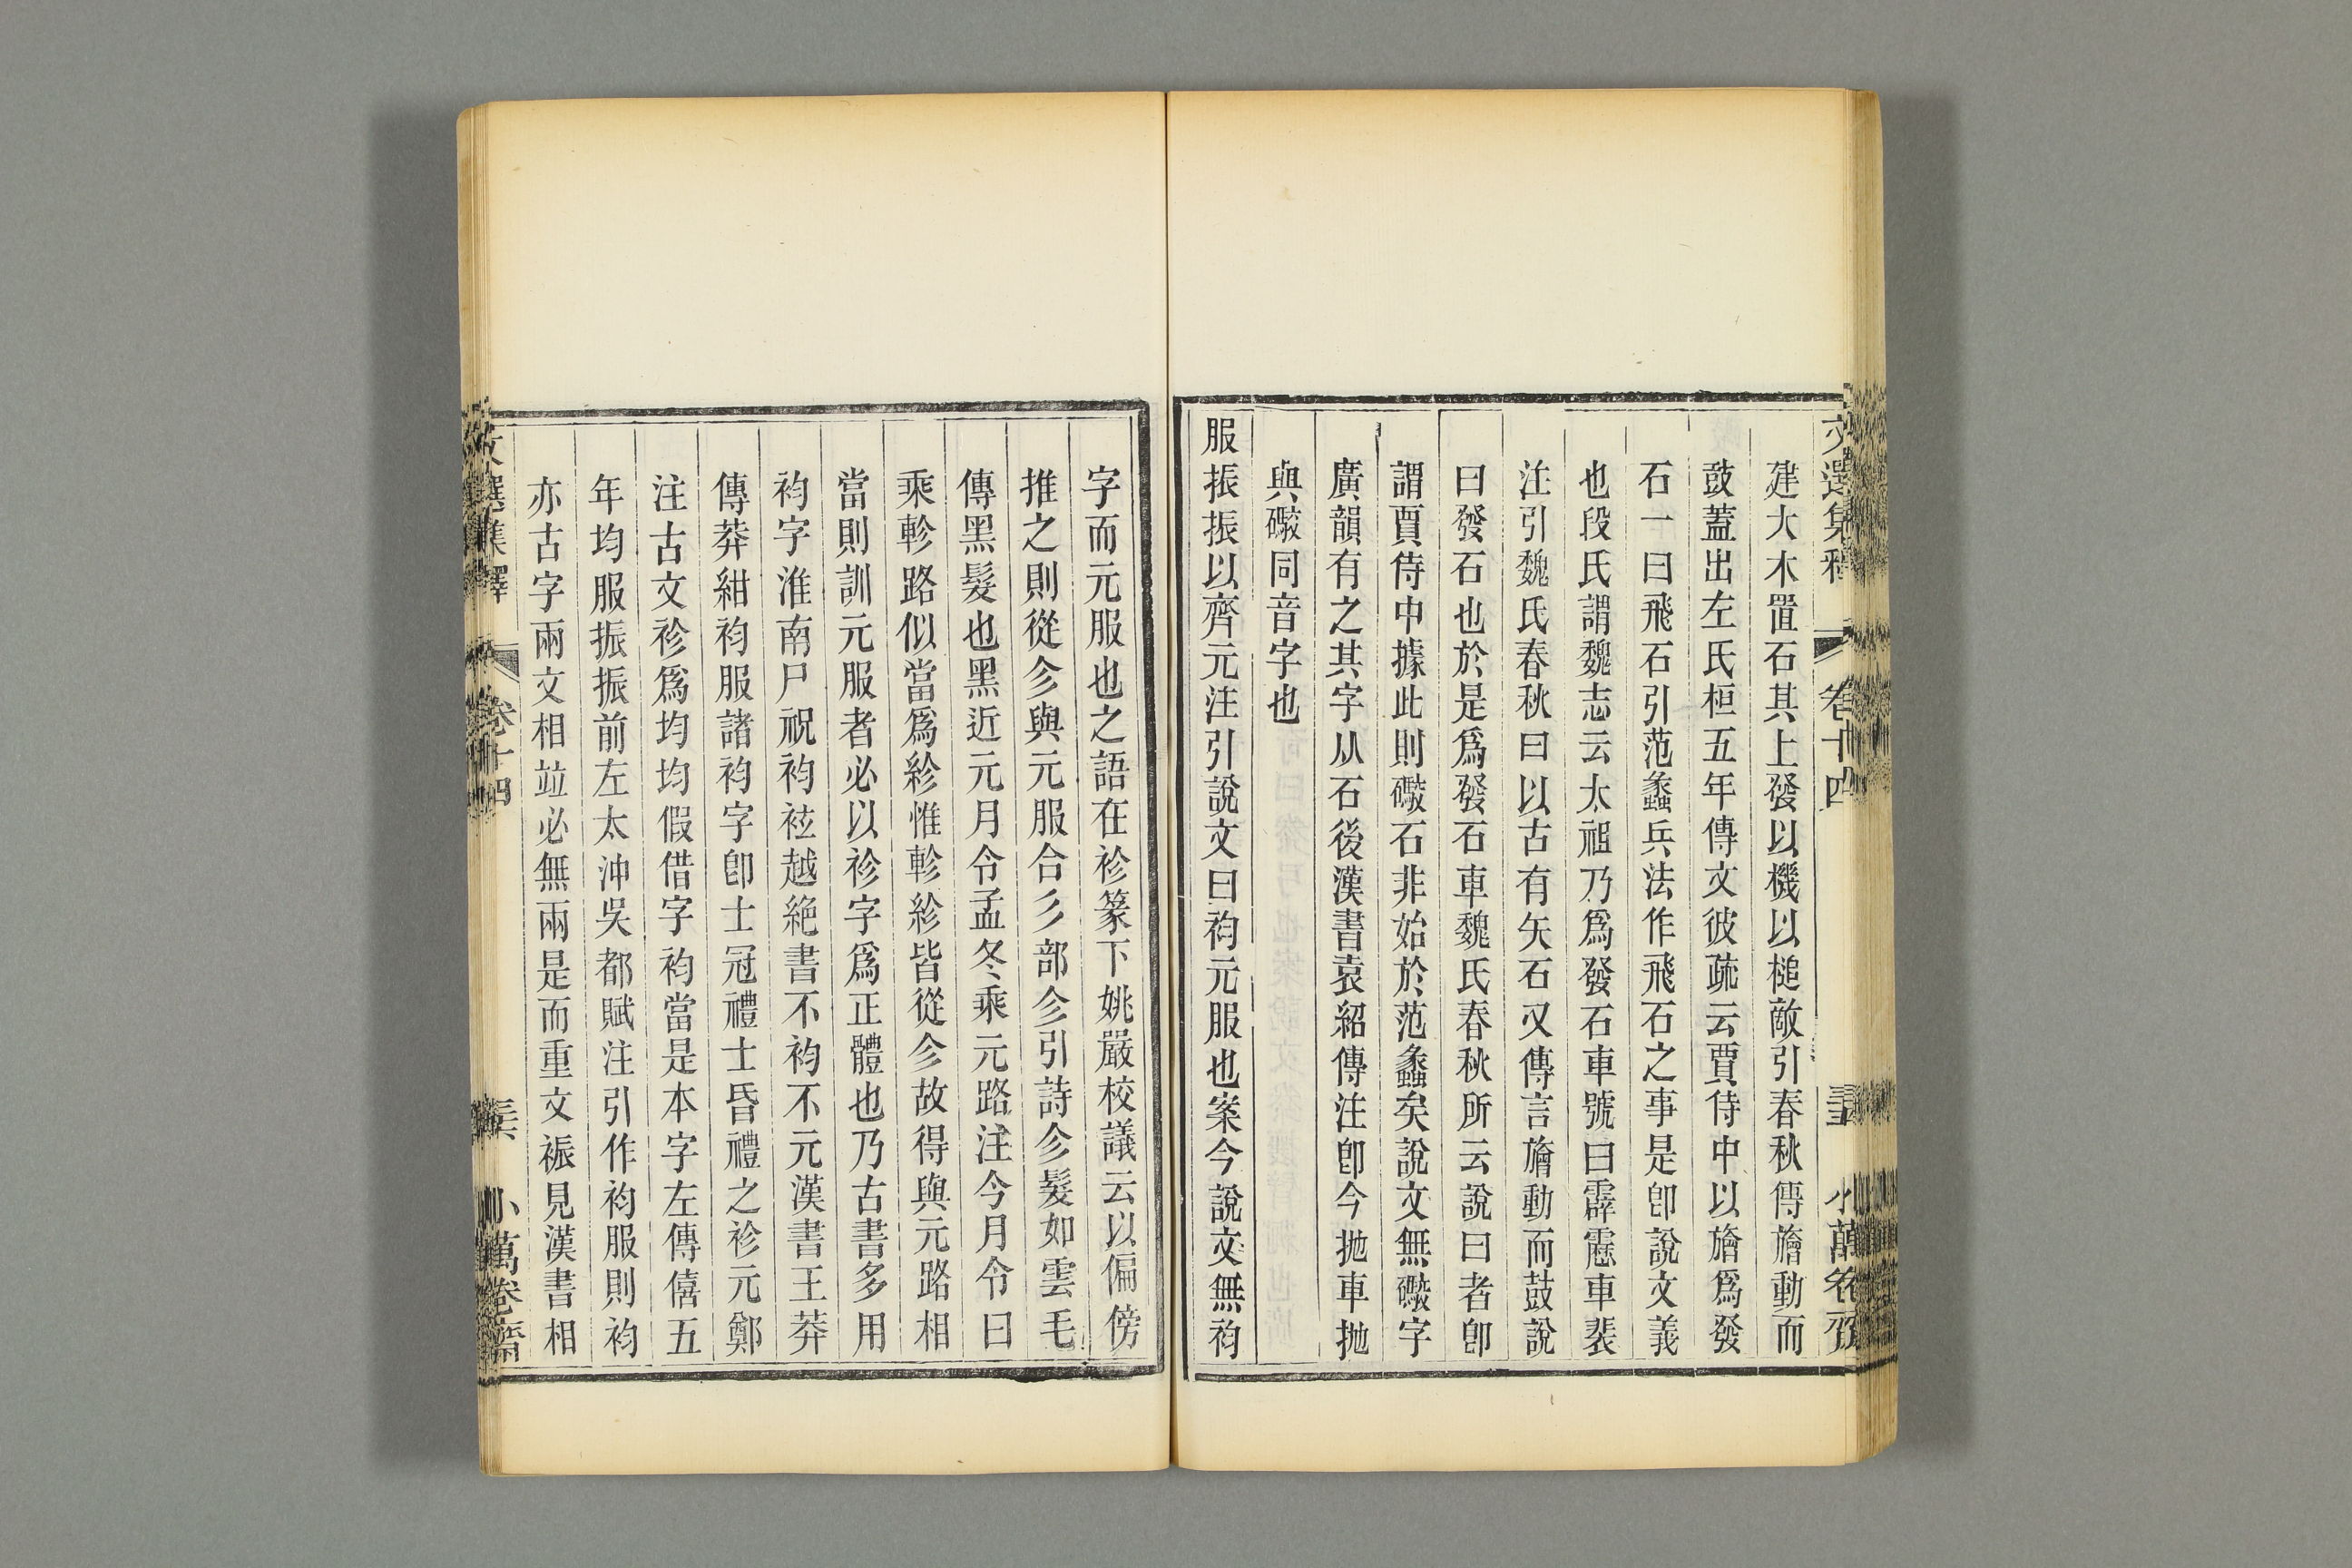 文選集釋 卷十四 小萬卷
建大木置石其上發以機以槌敵引春秋傳旝動而
鼓蓋出左氏桓五年傳文彼疏云賈侍中以旝爲發
石一曰飛石引范蠡兵法作飛石之事是卽說文義
也段氏謂魏志云太祖乃爲發石車號曰霹靂車裴
注引魏氏春秋曰以古有矢石又傳言旝動而鼓說
曰發石也於是爲發石車魏氏春秋所云說曰者卽
謂賈侍中據此則礮石非始於范蠡矣說文無礮字
廣韻有之其字从石後漢書袁紹傳注卽今拋車拋
與礮同音字也
服振振以齊元注引說文曰袀元服也案今說文無袀
字而元服也之語在袗篆下姚嚴校議云以偏傍
推之則從㐱與元服合彡部㐱引詩㐱髮如雲毛
傳黑髮也黑近元月令孟冬乘元路注今月令曰
乘軫路似當爲紾惟軫紾皆從㐱故得與元路相
當則訓元服者必以袗字爲正體也乃古書多用
袀字淮南尸祝袀袨越絕書不袀不元漢書王莽
傳莽紺袀服諸袀字卽士冠禮士昏禮之袗元鄭
注古文袗爲均均假借字袀當是本字左傳僖五
年均服振振前左太沖吳都賦注引作袀服則袀
亦古字兩文相竝必無兩是而重文裖見漢書相
文選集釋 卷十四 小萬卷齋